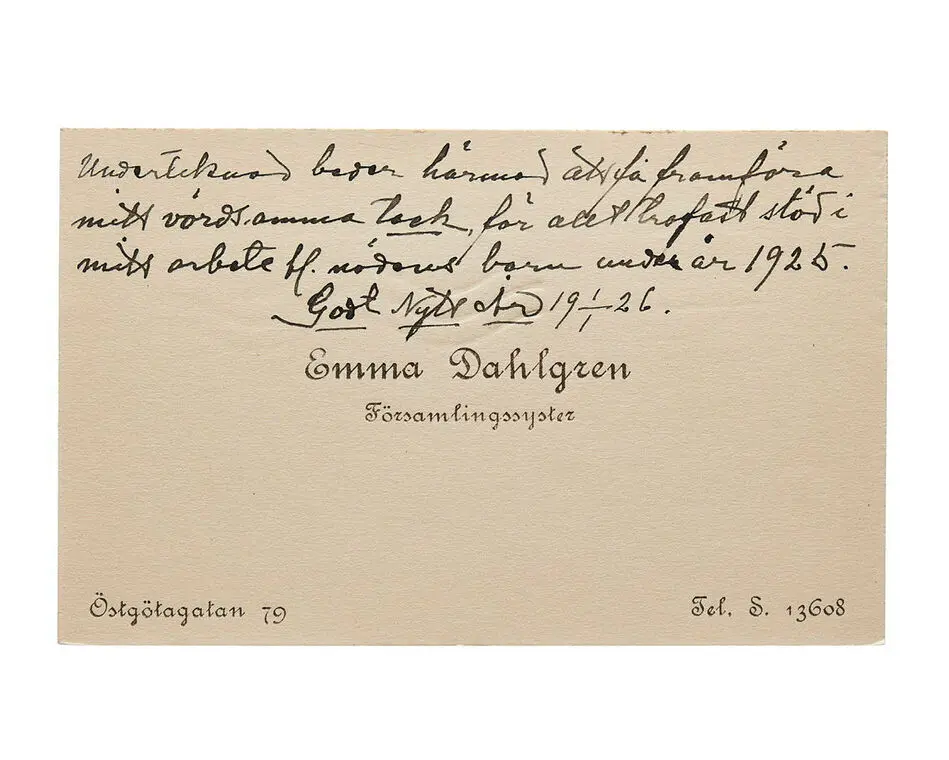 Undertecknad beder härmed att få framföra
mitt vördsamma tack, för allt trofast stöd i
mitt arbete bl. nödens barn under år 1925.
Godt Nytt År 19 1/1 26.
Emma Dahlgren
Församlingssyster
Östgötagatan 79
Tel. S. 13608